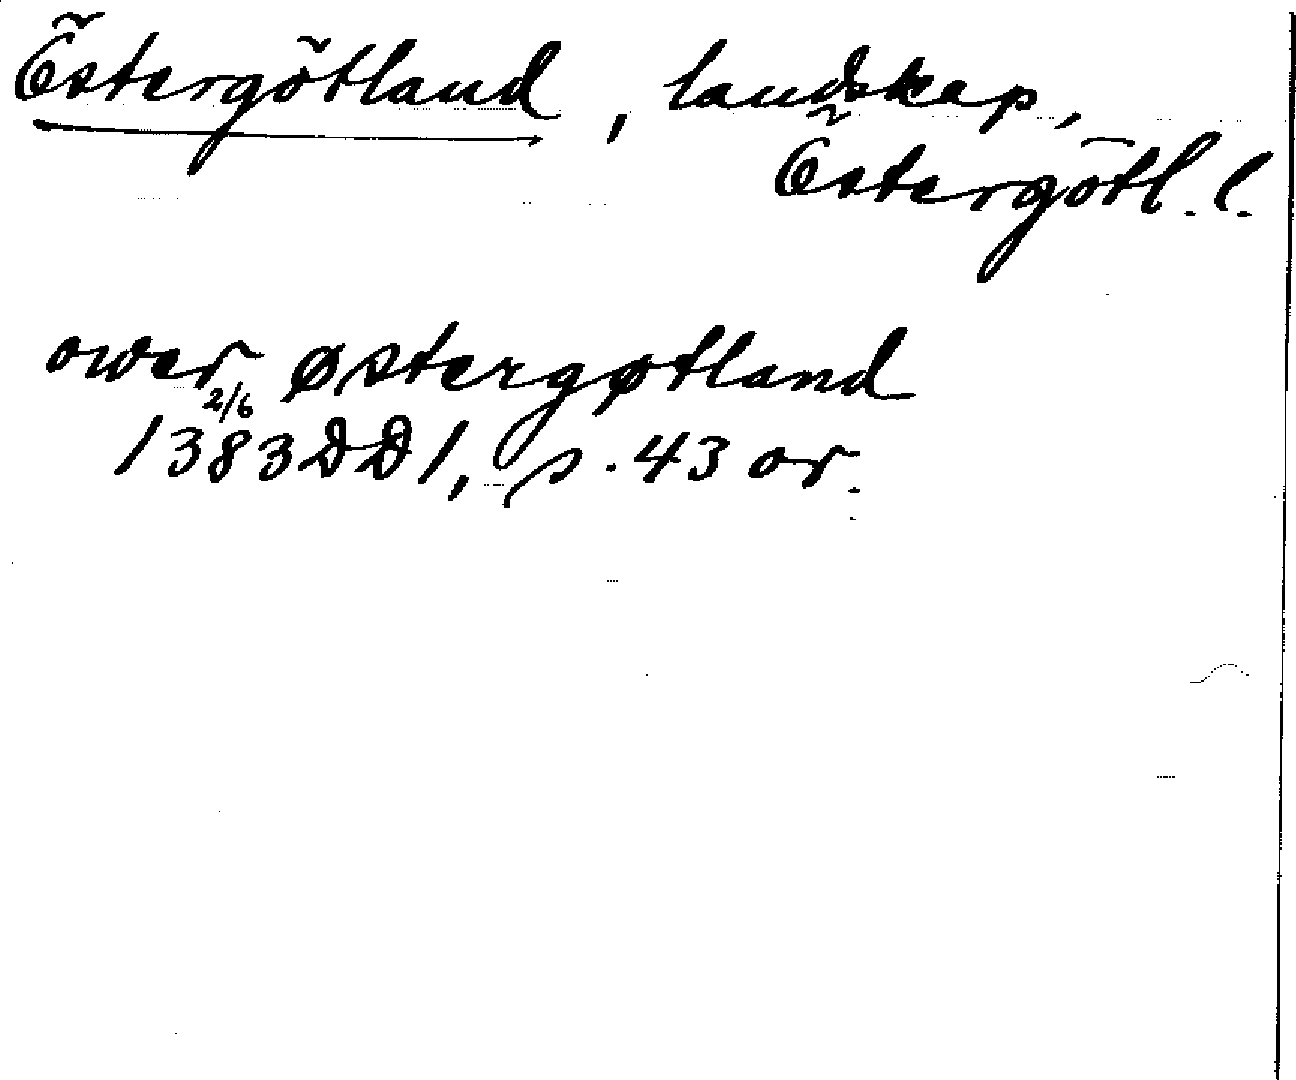 Östergötland, landskap,
Östergötl. l.
ower østergøtland
2/6
1383 DD 1, s. 43 or.